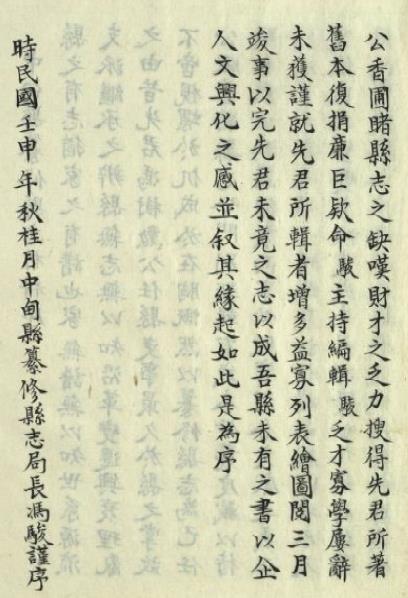 公香圃睹縣志之缺嘆財才之乏力搜得先君所著
舊本復捐廉巨款命駿主持編輯駿乏才寡學屢辭
未獲謹就先君所輯者增多益寡列表繪圖閱三月
竣事以完先君未竟之志以成吾縣未有之書以企
人文興化之感並叙其緣起如此是為序
時民國壬申年秋桂月中甸縣纂修縣志局長馮駿謹序